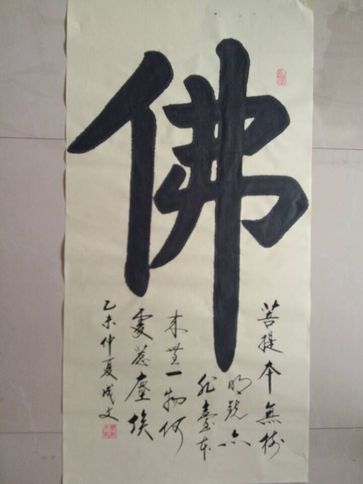 佛
菩提本無樹
明鏡亦
非臺本
来無一物何
處惹塵埃
乙未仲夏成文